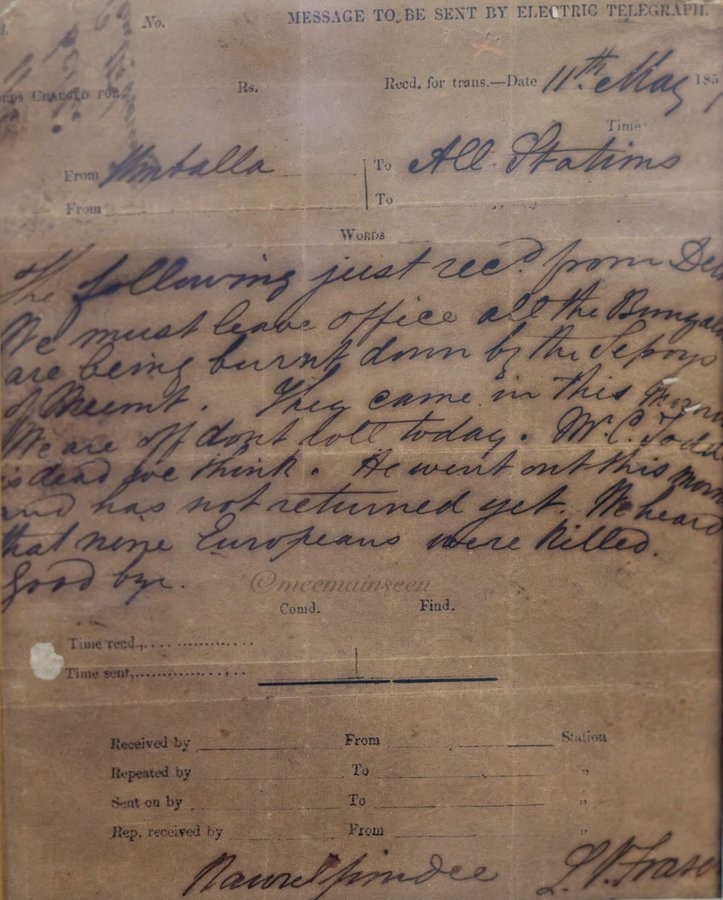 No. MESSAGE TO BE SENT BY ELECTRIC TELEGRAPH.
CHARGED FOR Rs. Recd. for trans.—Date 11th. May 185
Time
From Umballa To All Stations
From To
WORDS
The following just recd. from Del
We must leave office all the Bungal
are being burnt down by the Sepoys
of Meerut. They came in this morn
We are off dont today. Mr. C. Todd
is dead we think. He went out this morn
and has not returned yet. We heard
that nine Europeans were killed.
Good bye.
@meemainseen
Comd. Find.
Time recd.,
Time sent,
Received by From Station
Repeated by To "
Sent on by To "
Rep. received by From "
Rawulpindee